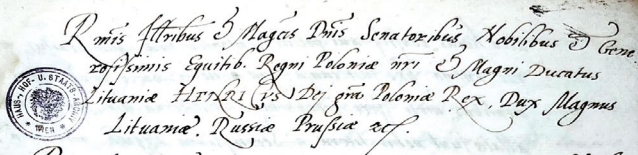 Rmis Illribus & Magcis Dnis Senatoribus Nobilibus & Gene
rosissimis Equitib. Regni Poloniæ nri & Magni Ducatus
Lituaniæ HENRICUS Dei gra Poloniæ Rex, Dux Magnus
Lituaniæ. Russiæ Prussiæ
HAUS- HOF- U. STAATS-ARCHIV
WIEN